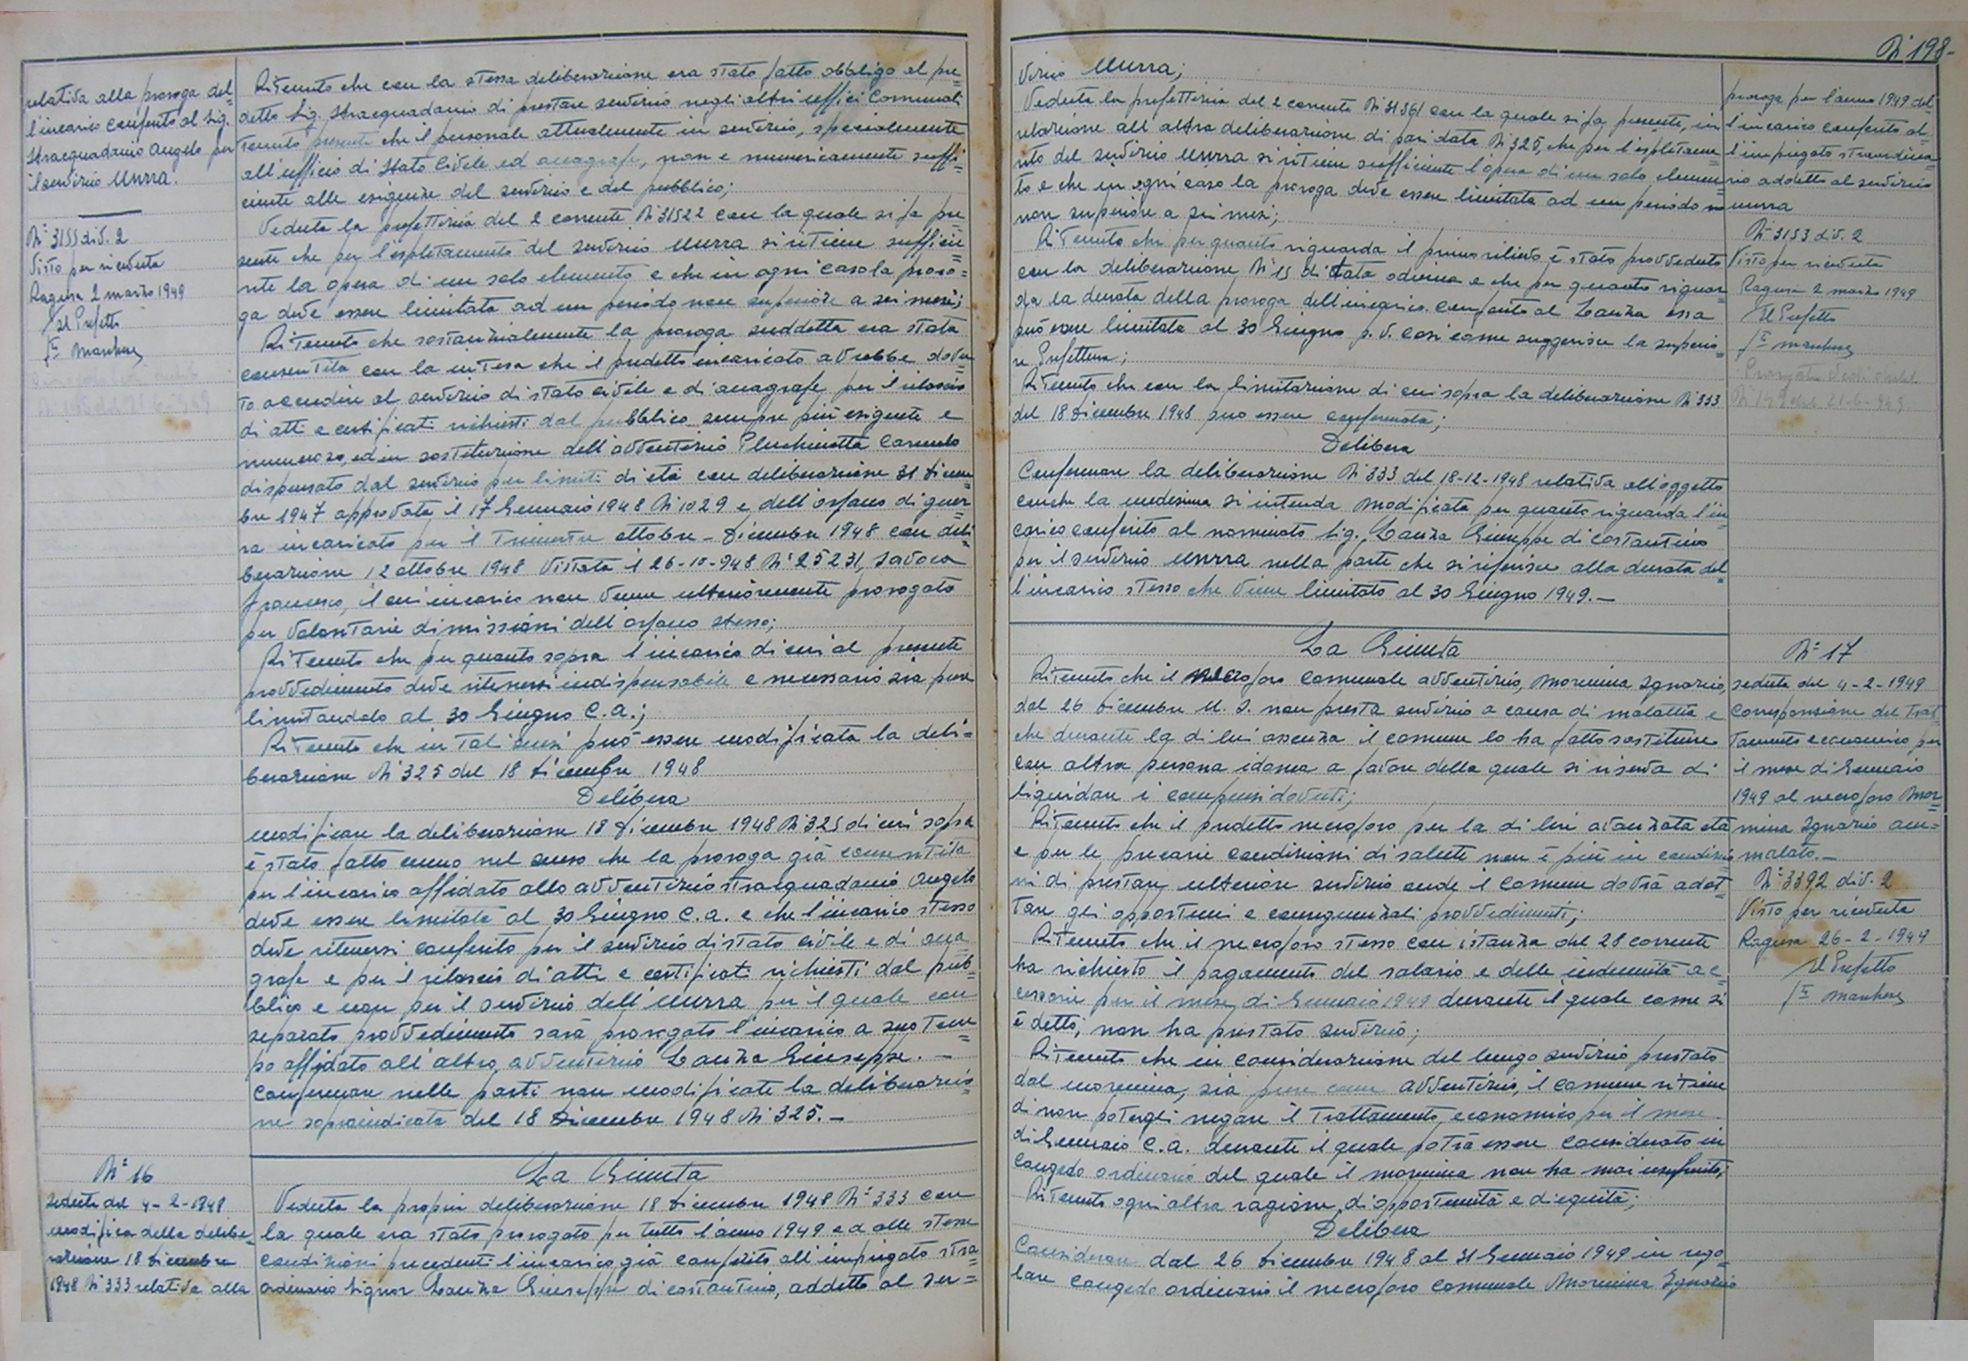 relativa alla proroga del=
l'incarico conferito al Sig.
Stracquadanio Angelo per
il servizio Unrra.
N° 3155 div. 2
Visto per ricevuta
Ragusa 2 marzo 1949
Il Prefetto
Ritenuto che con la stessa deliberazione era stato fatto obbligo al pre=
detto Sig. Stracquadanio di prestare servizio negli altri uffici Comunali
Tenuto presente che il personale attualmente in servizio, specialmente
all'ufficio di Stato Civile ed anagrafe, non è numericamente suffi=
ciente alle esigenze del servizio e del pubblico;
Veduta la prefettizia del 2 corrente N° 31522 con la quale si fa pre=
sente che per l'espletamento del servizio Unrra si ritiene sufficie=
nte la opera di un solo elemento e che in ogni caso la proro=
ga deve essere limitata ad un periodo non superiore a sei mesi;
Ritenuto che sostanzialmente la proroga suddetta era stata
consentita con la intesa che il predetto incaricato avrebbe dovu=
to accudire al servizio di stato civile e di anagrafe per il rilascio
di atti e certificati richiesti dal pubblico sempre più esigente e
numeroso, ed in sostituzione dell'avventizio Pluchinotta Carmelo
dispensato dal servizio per limiti di età con deliberazione 31 Dicem=
bre 1947 approvata il 17 Gennaio 1948 N° 1029 e dell'orfano di guer=
ra incaricato per il Trimestre ottobre - Dicembre 1948 con deli=
berazione 12 ottobre 1948 Vistata il 26-10-948 N° 25231, Savoca
Francesco, il cui incarico non venne ulteriormente prorogato
per volontarie dimissioni dell'orfano stesso;
Ritenuto che per quanto sopra l'incarico di cui al presente
provvedimento deve ritenersi indispensabile e necessario sia pure
limitandolo al 30 Giugno C.a.;
Ritenuto che in tali sensi può essere modificata la deli=
berazione N° 325 del 18 Dicembre 1948
Delibera
modificare la deliberazione 18 Dicembre 1948 N° 325 di cui sopra
è stato fatto cenno nel senso che la proroga già consentita
per l'incarico affidato allo avventizio Stracquadanio Angelo
deve essere limitata al 30 Giugno C.a. e che l'incarico stesso
deve ritenersi conferito per il servizio di stato civile e di ana
grafe e per il rilascio di atti e certificati richiesti dal pub=
blico e non per il servizio dell'Unrra per il quale con
separato provvedimento sarà prorogato l'incarico a suo tem=
po affidato all'altro avventizio Lanza Giuseppe. -
Confermare nelle parti non modificate la deliberazio=
ne sopraindicata del 18 Dicembre 1948 N° 325. -
N° 16
Seduta del 4-2-1948
modifica della delibe=
razione 18 Dicembre
1948 N° 333 relativa alla
La Giunta
Veduta la propria deliberazione 18 Dicembre 1948 N° 333 con
la quale era stato prorogato per tutto l'anno 1949 ed alle stesse
condizioni precedenti l'incarico già conferito all'impiegato stra=
ordinario Signor Lanza Giuseppe di Costantino, addetto al ser=
N° 198-
vizio Unrra;
Veduta la prefettizia del 2 corrente N° 31361 con la quale si fa presente, in
relazione all'altra deliberazione di pari data N° 325, che per l'espletame=
nto del servizio Unrra si ritiene sufficiente l'opera di un solo elemen=
to e che in ogni caso la proroga deve essere limitata ad un periodo
non superiore a sei mesi;
Ritenuto che per quanto riguarda il primo rilievo è stato provveduto
con la deliberazione N° 15 di data odierna e che per quanto riguar=
da la durata della proroga dell'incarico conferito al Lanza essa
può essere limitata al 30 Giugno p.v. così come suggerisce la superio=
re Prefettura;
Ritenuto che con la limitazione di cui sopra la deliberazione N° 333
del 18 Dicembre 1948 può essere confermata;
Delibera
Confermare la deliberazione N° 333 del 18-12-1948 relativa all'oggetto
conche la medesima si intenda modificata per quanto riguarda l'in=
carico conferito al nominato Sig. Lanza Giuseppe di Costantino
per il servizio Unrra nella parte che si riferisce alla durata del=
l'incarico stesso che viene limitato al 30 Giugno 1949. -
proroga per l'anno 1949 del=
l'incarico conferito al=
l'impiegato straordina=
rio addetto al servizio
unrra
N° 3153 div. 2
Visto per ricevuta
Ragusa 2 marzo 1949
Il Prefetto
La Giunta
Ritenuto che il necroforo Comunale avventizio, Mormina Ignazio,
dal 26 Dicembre u.s. non presta servizio a causa di malattia e
che durante la di lui assenza il comune lo ha fatto sostituire
con altra persona idonea a favore della quale si riserva di
liquidare i compensi dovuti;
Ritenuto che il predetto necroforo per la di lui avanzata età
e per le precarie condizioni di salute non è più in condizio
ni di prestare ulteriore servizio onde il Comune dovrà adot=
tare gli opportuni e consequenziali provvedimenti;
Ritenuto che il necroforo stesso con istanza del 28 corrente
ha richiesto il pagamento del salario e delle indennità ac=
cessorie per il mese di Gennaio 1949 durante il quale come si
è detto, non ha prestato servizio;
Ritenuto che in considerazione del lungo servizio prestato
dal mormina, sia pure come avventizio, il comune ritiene
di non potergli negare il Trattamento economico per il mese
di Gennaio C.a. durante il quale potrà essere considerato in
congedo ordinario del quale il mormina non ha mai usufruito;
Ritenuto ogni altra ragione di opportunità e d'equità;
Delibera
Considerare dal 26 Dicembre 1948 al 31 Gennaio 1949 in rego=
lare congedo ordinario il necroforo comunale Mormina Ignazio
N° 17
seduta del 4-2-1949
Corresponsione del trat=
tamento economico per
il mese di Gennaio
1949 al necroforo Mor=
mina Ignazio am=
malato. -
N° 3392 div. 2
Visto per ricevuta
Ragusa 26-2-1949
Il Prefetto